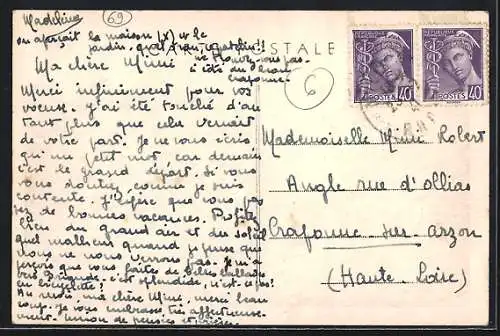 Madeleine
69
on aperçoit la maison (x) et le
jardin.
CARTE POSTALE
ne trouvez-vous pas
Ma chère Mimi
6
Merci infiniment pour vos
voeux. J'ai été touchée d'au
tant plus que cela venait
de votre part. Je ne vous écris
qu'un petit mot, car demain
c'est le grand départ. Si vous
vous doutiez comme je suis
contente. J'espère que vous pas
sez de bonnes vacances. Profitez
bien du grand air et du soleil
quel malheur quand je pense que
nous ne nous verrons pas. Je m'a
perçois que vous faites de belles ballades
en bicyclette; c'est splendide, n'est-ce pas?
Au revoir, ma chère Mimi, merci beau
coup. Je vous embrasse très affectueuse
ment. Union de pensées et prières.
REPUBLIQUE FRANÇAISE
POSTES 40
REPUBLIQUE FRANÇAISE
POSTES 40
Mademoiselle Mimi Robert
Angle rue d'Ollias
Craponne-sur-Arzon
(Haute-Loire)